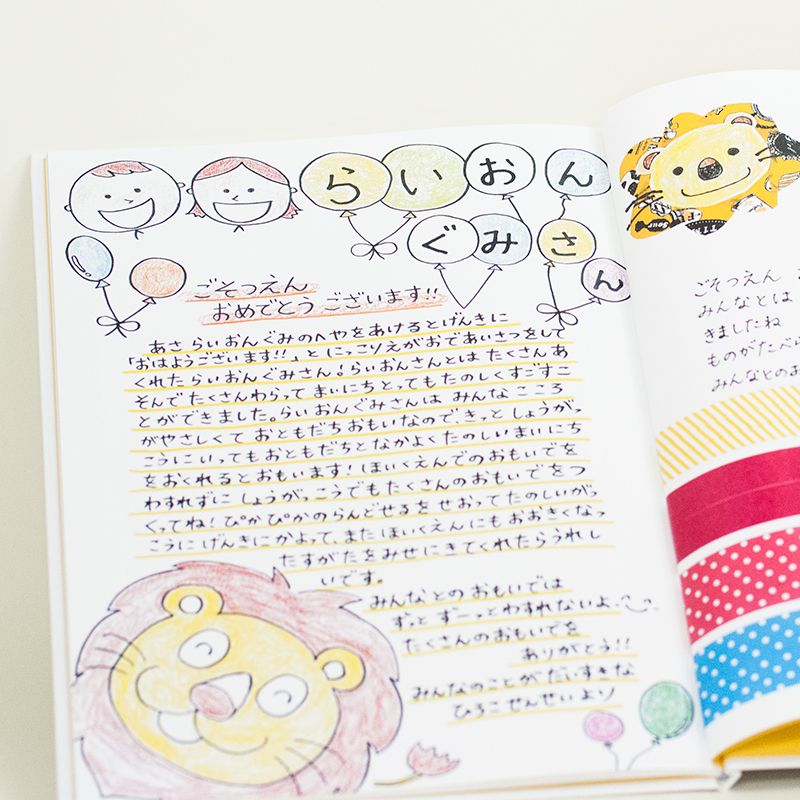 らいおん
ぐみさん
ごそつえん
おめでとう ございます!!
あさ らいおんぐみのへやをあけるとげんきに
「おはようございます!!」と にっこりえがおであいさつをして
くれた らいおんぐみさん!らいおんさんとは たくさんあ
そんで たくさんわらって まいにち とっても たのしくすごすこ
とができました。らいおんぐみさんは みんな こころ
がやさしくて おともだちおもいなので、きっと しょうがっ
こうにいっても おともだちと なかよく たのしい まいにち
をおくれるとおもいます!ほいくえんでのおもいでを
わすれずに しょうがっこうでも たくさんのおもいでをつ
くってね!ぴかぴかのらんどせるを せおって たのしいがっ
こうに げんきに かよって、また ほいくえんにも おおきくなっ
たすがたをみせにきてくれたらうれし
いです。
みんなとの おもいでは
ずっと ずーっとわすれないよ、
たくさんのおもいでを
ありがとう!!
みんなのことがだいすきな
ひろこ せんせいより
ごそつえん
みんなとは
きましたね
ものがたべら
みんなとのお